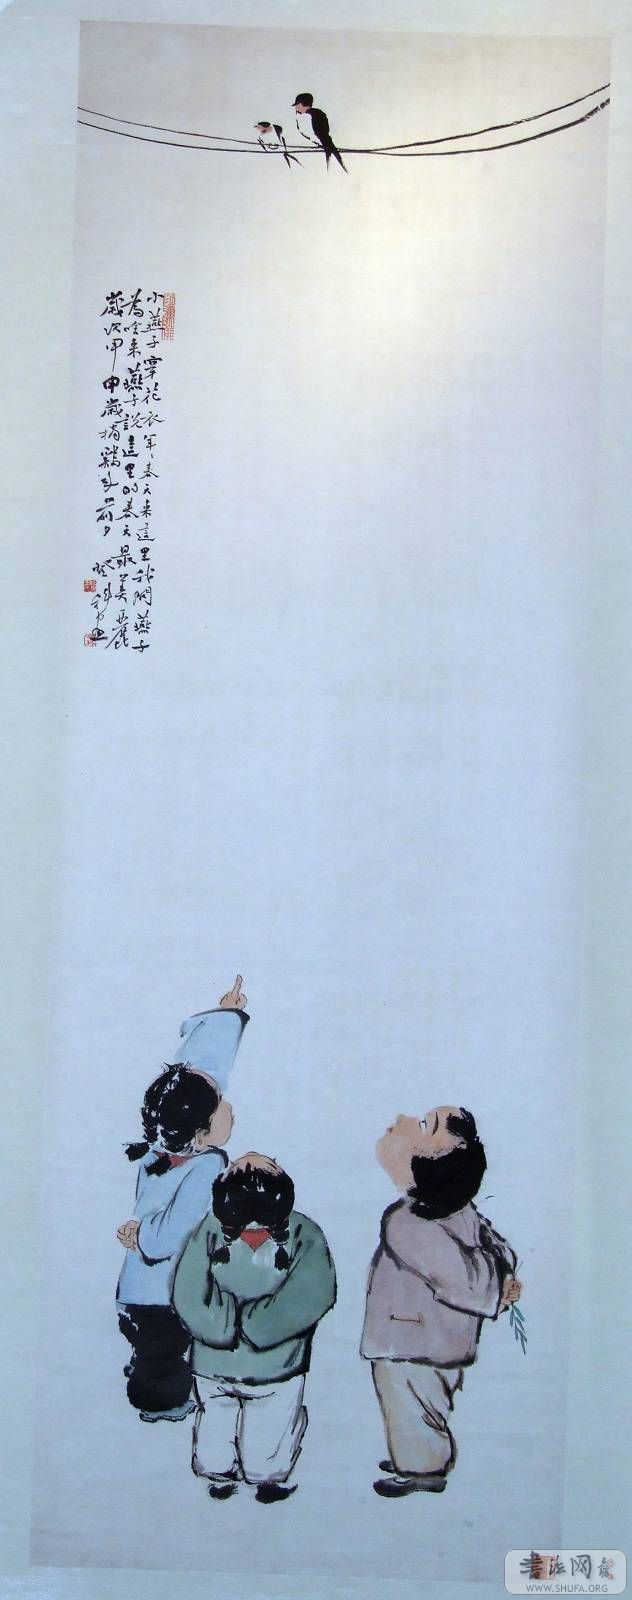 小燕子穿花衣年〻春天来這里我問燕子
為啥来燕子說這里的春天最美麗
歲次甲申歲椿鷄年前夕
書法网
WWW.SHUFA.ORG